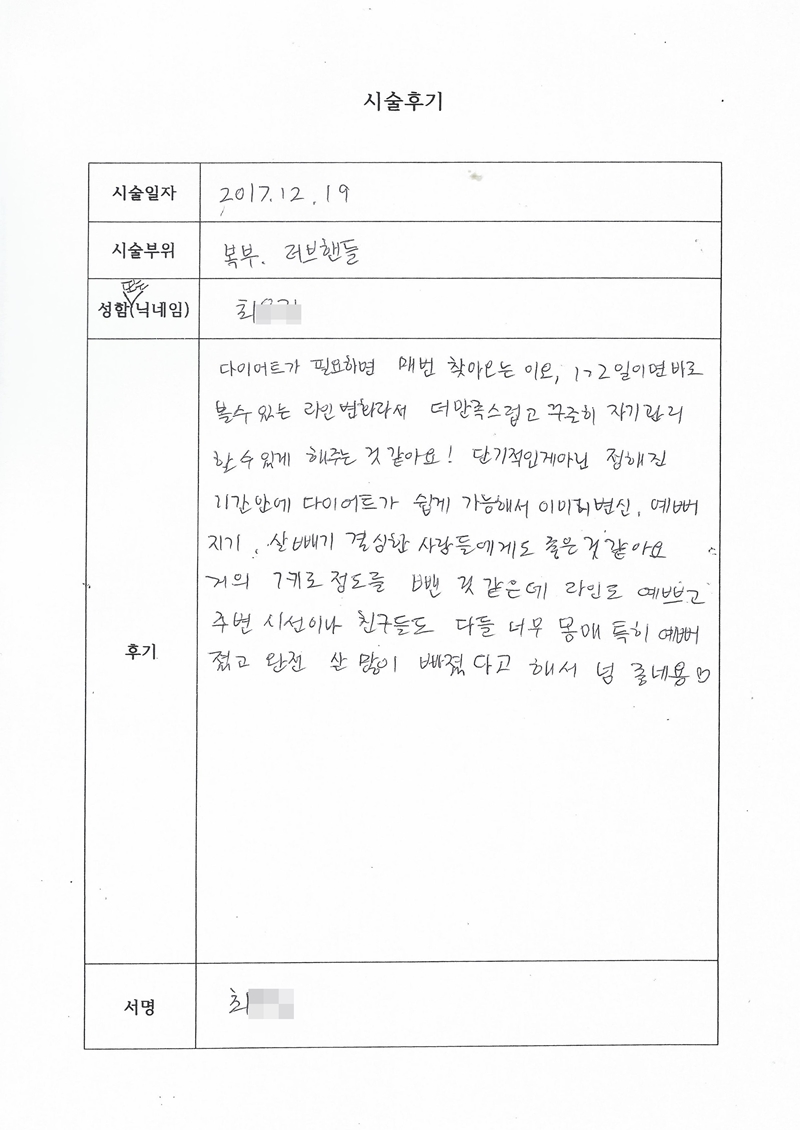 시술후기
시술일자 2017.12.19
시술부위 복부. 러브핸들
또는
성함(닉네임) 최
다이어트가 필요하면 매번 찾아오는 이요, 1~2일이면 바로
볼수 있는 라인변화라서 더만족스럽고 꾸준히 자기관리
할 수 있게 해주는 것 같아요! 단기적인게아닌 정해진
기간안에 다이어트가 쉽게 가능해서 이미지변신, 예뻐
지기, 살빼기 결심한 사람들에게도 좋은것 같아요
거의 7키로 정도를 뺀 것 같은데 라인도 예쁘고
주변 시선이나 친구들도 다들 너무 몸매 특히 예뻐
졌고 완전 살 많이 빠졌다고 해서 넘 좋네용♡
후기
서명 최